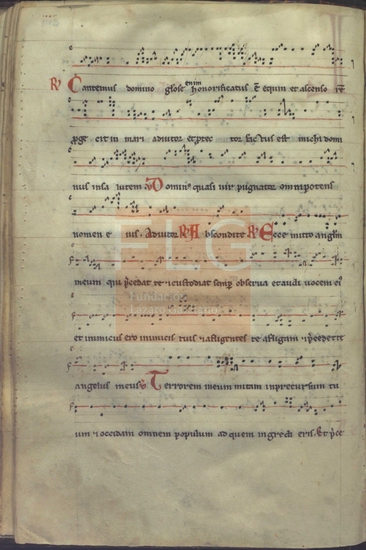 Cantemus domino gloriose enim honorificatus est equum et ascenso rem
in mari adiutor et protec tor factus est michi domi
nus in sa lutem Dominus quasi vir pugnator omnipotens
nomen e ius. Adiutor R Abscondite R Ecce mitto angelum
meum qui precedat te et custodiat semper observa et audi vocem
et inimicus ero inimicis tuis et affligentes te affligam et precedet te
angelus meus Terrorem meum mittam in precursum tu
um et occidam omnem populum ad quem ingredi eris. Et prece